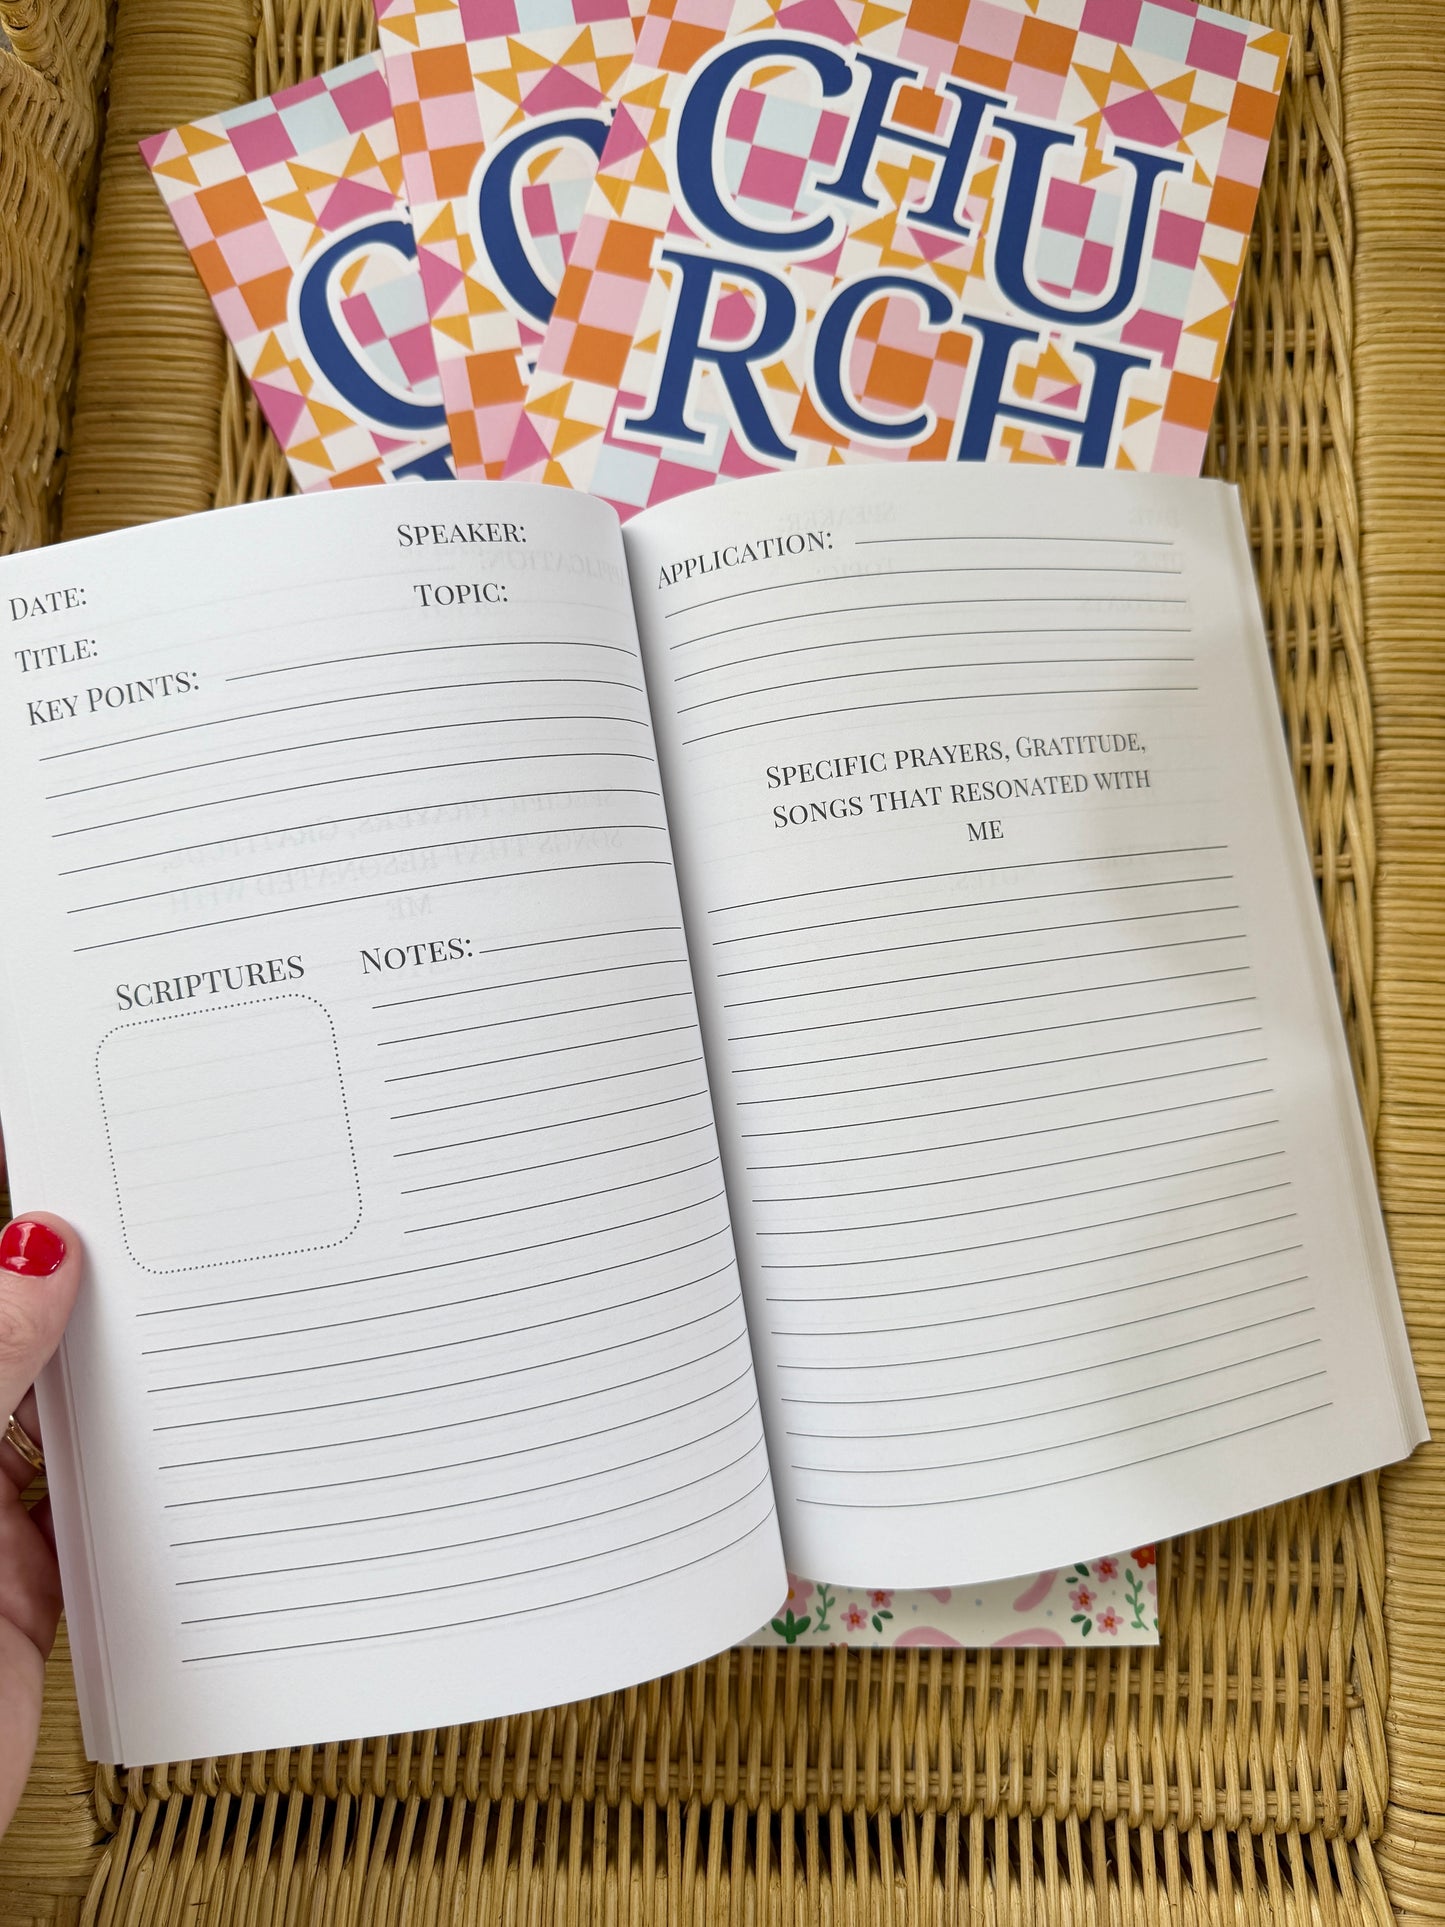 CHU
RCH
C
C
SPEAKER:
DATE:
TOPIC:
TITLE:
KEY POINTS:
SCRIPTURES
NOTES:
APPLICATION:
SPECIFIC PRAYERS, GRATITUDE,
SONGS THAT RESONATED WITH
ME